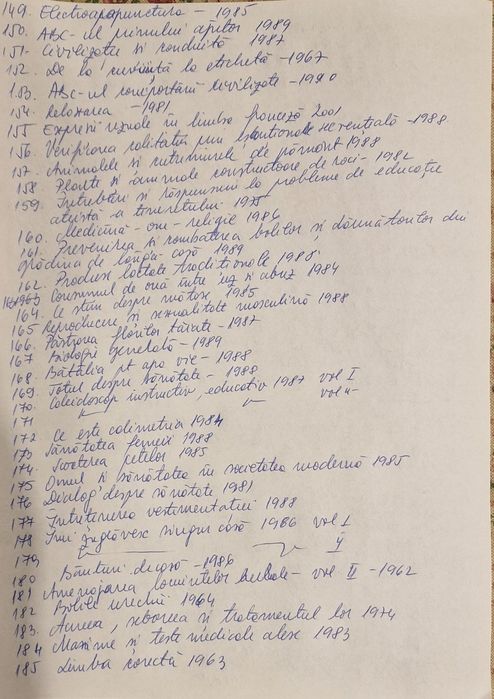 149. Electroapapunctura - 1985
150. ABC-ul primului ajutor 1989
151- Civilizatie si conduită 1987
152. De la cuviință la etichetă -1967
153. ABC-ul comportării civilizate -1980
154. Relaxarea -1981
155 Expresii uzuale în limba franceză 2001
156. Verificarea calitatii prin -1988.
157. Animalele si cutremurele de pământ 1988
158. Plante si animale constructoare de roci - 1982
159. Întrebări si răspunsuri la probleme de educație
ateistă a tineretului 1975
160. Medicină - om - religie 1986
161. Prevenirea si combaterea bolilor si dăunătorilor din
grădina de lângă casă 1989
162. Produse lactate traditionale 1988
163 Consumul de ouă între uz si abuz 1984
164. Ce stim despre mătase 1985
165 Reproducere si sexualitate masculină 1988
166. Păstrarea florilor tăiate -1987
167 Biologie generală -1989
168. Bătălia pt apa vie - 1988
169. Totul despre sănătate - 1988
170. Caleidoscop instructiv, educativ 1987 vol I
171 vol II-
172. Ce este calimetria 1984
173 Sănătatea femeii 1988
174. Scoterea petelor 1985
175 Omul si sănătatea în societatea modernă 1985
176 Dialog despre sănătate 1981
177 Întreținerea vestimentatiei 1988
178 Îmi zugrăvesc singur casa 1986 vol I
179
180 Băuturi de casă - 1986
181 Amenajarea vol II - 1962
182 Bolile urechii 1964
183. Acneea, seboreea si tratamentul lor 1974
184 Maxime si texte medicale alese 1983
185 Limba corectă 1963